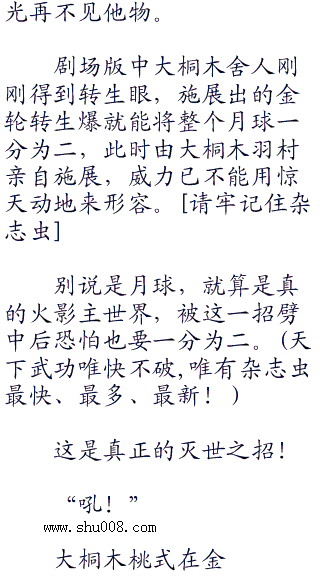 光再不见他物。
剧场版中大桐木舍人刚
刚得到转生眼，施展出的金
轮转生爆就能将整个月球一
分为二，此时由大桐木羽村
亲自施展，威力已不能用惊
天动地来形容。[请牢记住杂
志虫]
别说是月球，就算是真
的火影主世界，被这一招劈
中后恐怕也要一分为二。(天
下武功唯快不破,唯有杂志虫
最快、最多、最新！)
这是真正的灭世之招！
“吼！”
www.shu008.com
大桐木桃式在金